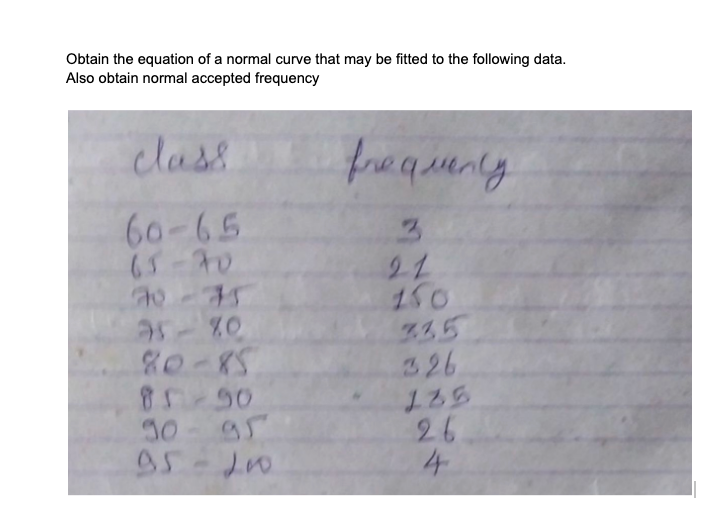 Obtain the equation of a normal curve that may be fitted to the following data.
Also obtain normal accepted frequency
class frequency
60-65 3
65-70 21
70-75 150
75-80 335
80-85 326
85-90 135
90-95 26
95-100 4